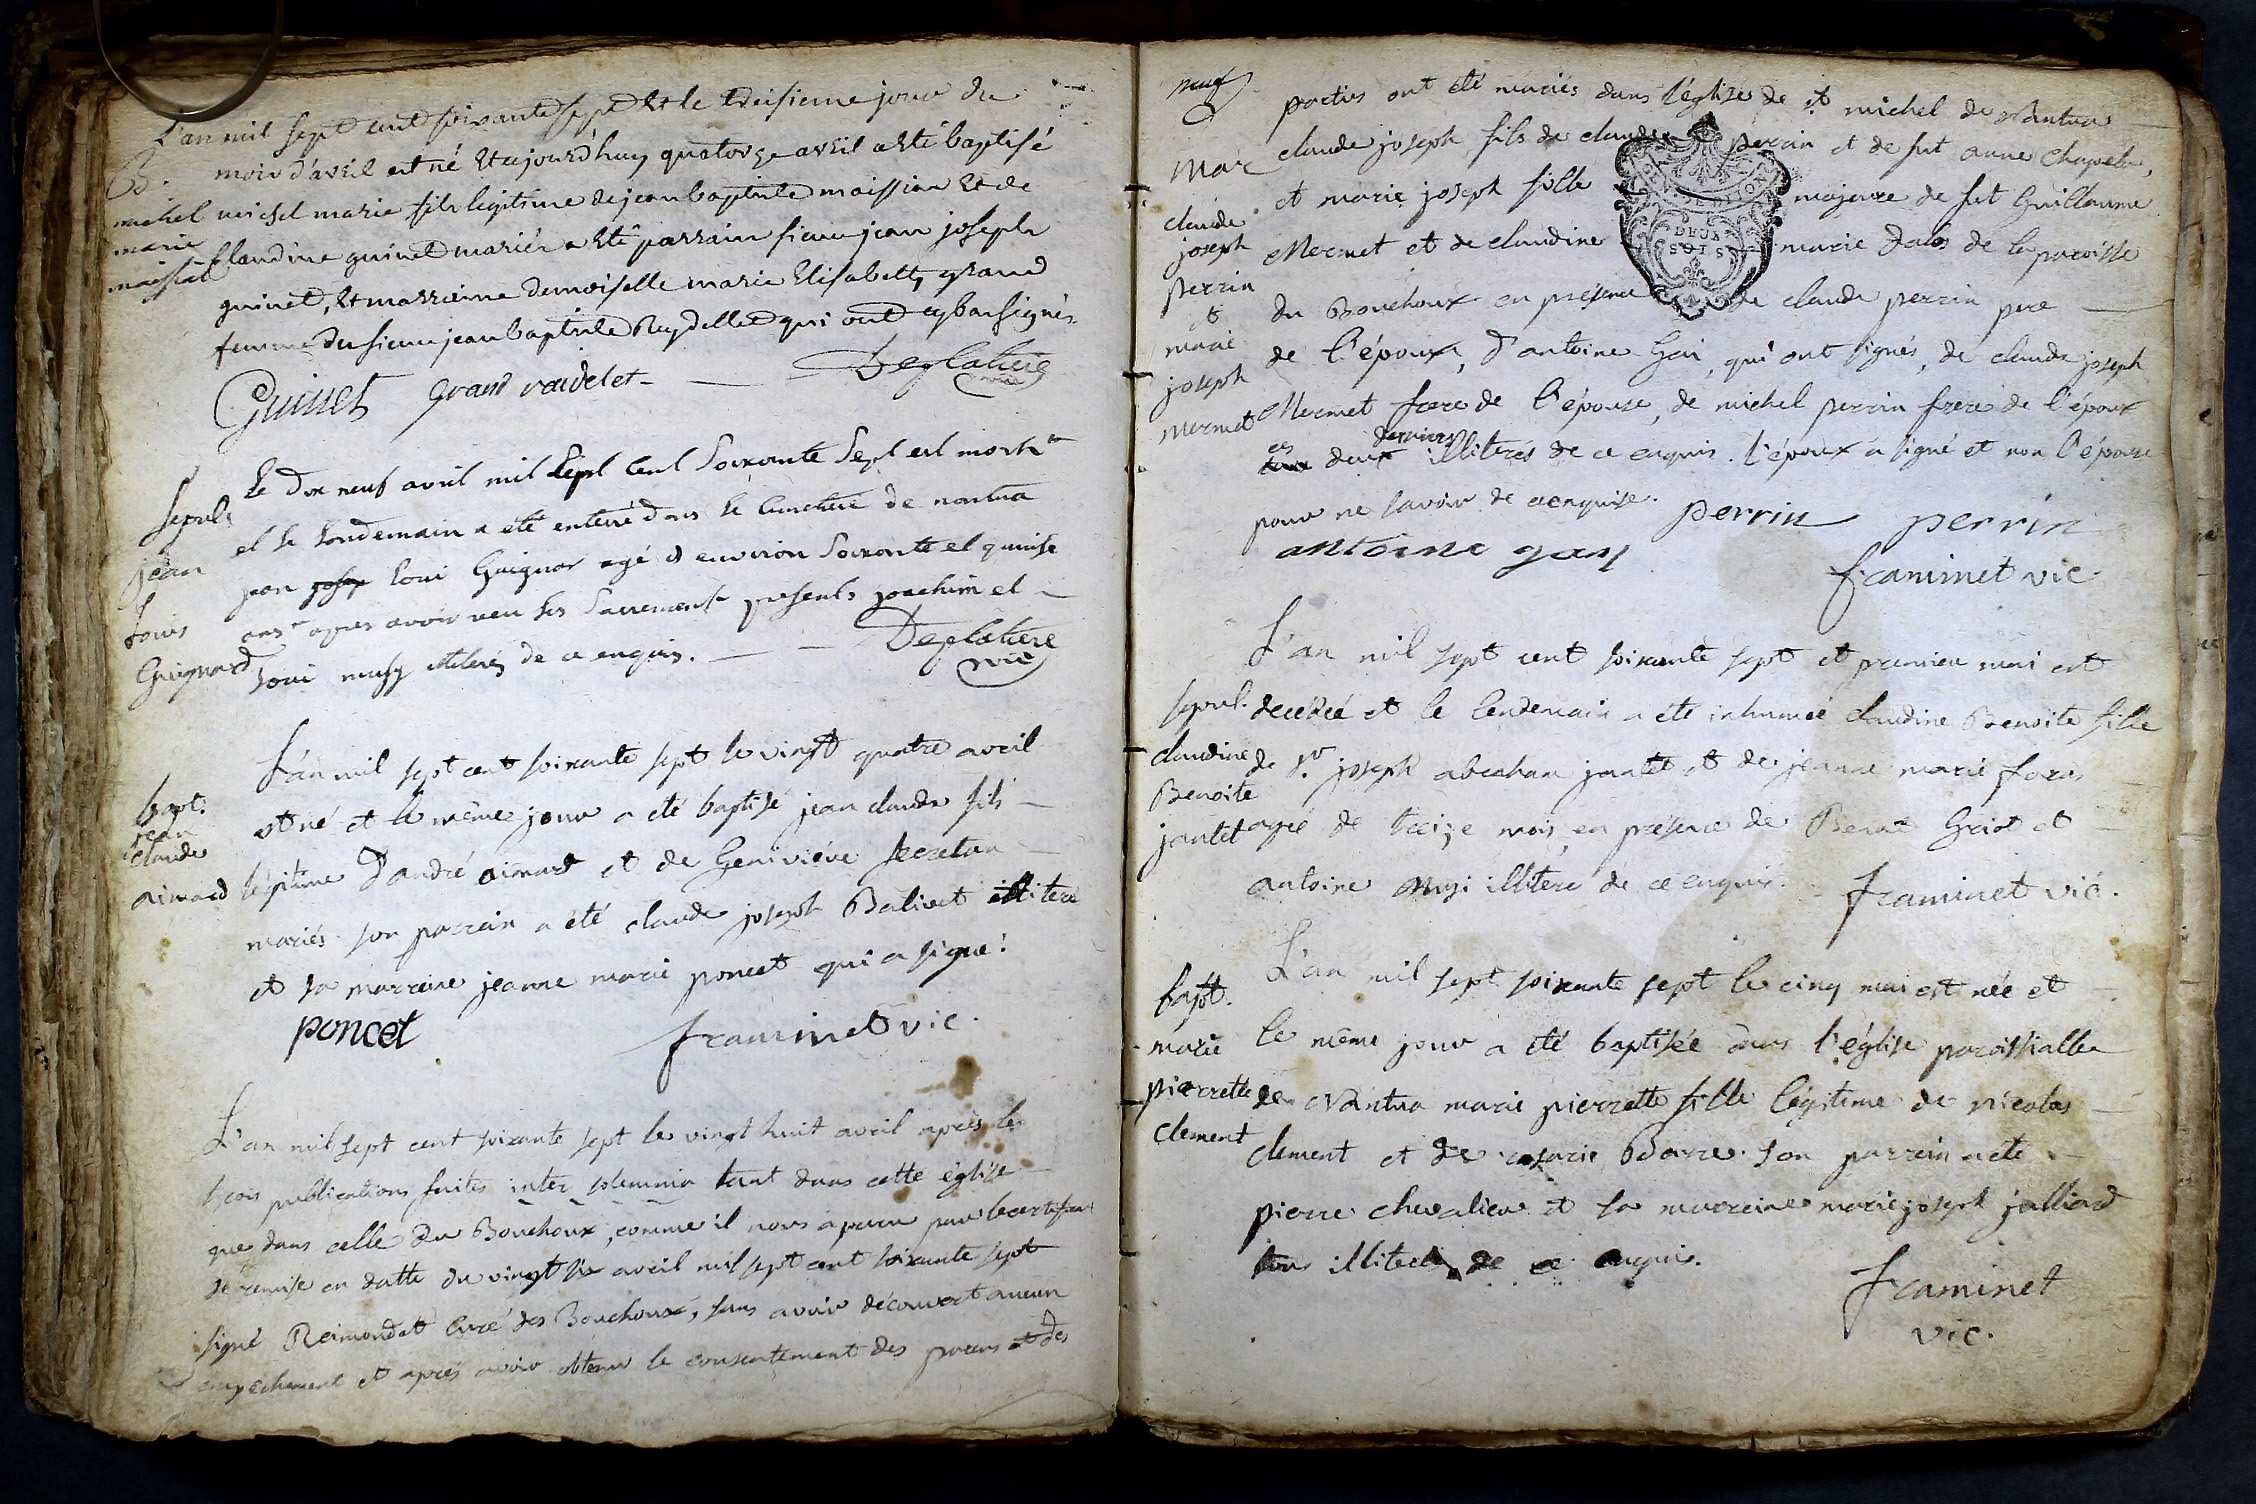 L'an mil sept cent soixante sept et le treisieme jour du
B.
mois d'avril est né et aujourd'huy quatorze avril a esté baptisé
michel
michel marie fils legitime de jean baptiste maissiat et de
marie
Claudine guinet mariés a esté parrain sieur jean joseph
maissiat
guinet, et marraine demoiselle marie Elisabeth grand
femme du sieur jean baptiste Reydellet qui ont cy bas signés
Guinet grand raidelet Deglatiere
vic
Sepul.
Le dix neuf avril mil sept cent soixante sept est mort
et le lendemain a eté enterré dans le cimetiere de nantua
jean
jean Loui Guignar agé d environ soixante et quinse
Louis
ans apres avoir receu les sacrements presents joachim et
Guignard
Loui musy illiterés de ce enquis. Deglatiere
vic
L'an mil sept cent soixante sept le vingt quatre avril
bapt.
est né et le même jour a été baptisé jean claude fils
jean
claude
aimard
légitime D'andré aimard et de Geneviéve secretan
mariés. son parrain a été claude joseph Balivet illiteré
et sa marraine jeanne marie poncet qui a signé.
poncet framinet vic.
L'an mil sept cent soixante sept le vingt huit avril après les
trois publications faites inter solemnia tant dans cette église
que dans celle du Bouchoux, comme il nous a paru par le certificat
de remise en datte du vingt six avril mil sept cent soixante sept
signé Reimondet Curé des Bouchoux, sans avoir découvert aucun
empechement et après avoir obtenu le consentement des parens et des
neuf
parties ont été mariés dans l'église de st michel de Nantua
Mar
claude joseph fils de claude perrin et de fut anne Chapelu,
et marie joseph fille majeure de fut Guillaume
claude
joseph
Mermet et de claudine marie Dalos de la paroisse
perrin
du Bouchoux en présence de claude perrin pere
et
marie
de l'époux, d'antoine Gai, qui ont signés, de claude joseph
joseph
Mermet frere de l'épouse, de michel perrin frere de l'époux
mermet
ces deux derniers illiterés de ce enquis. l'époux a signé et non l'épouse
pour ne savoir de ce enquise. perrin perrin
antoine gay framinet vic.
GEN. DE DIJON
DEUX
SOLS
L'an mil sept cent soixante sept et premier mai est
sepul.
decédée et le lendemain a été inhumée claudine Benoite fille
claudine
de sr. joseph abraham jantet et de jeanne marie foras
Benoite
jantet
agée de treize mois, en présence de Benoit Griot et
antoine musi illiteré de ce enquis. framinet vic.
L'an mil sept soixante sept le cinq mai est née et
bapt.
marie
le même jour a été baptisée dans l'église paroissialle
pierrette
de Nantua marie pierrette fille légitime de nicolas
clement
clement et de marie Barre. son parrein a été
pierre chevalier et sa marreine marie joseph julliard
tous illiterés de ce enquis.
framinet
vic.